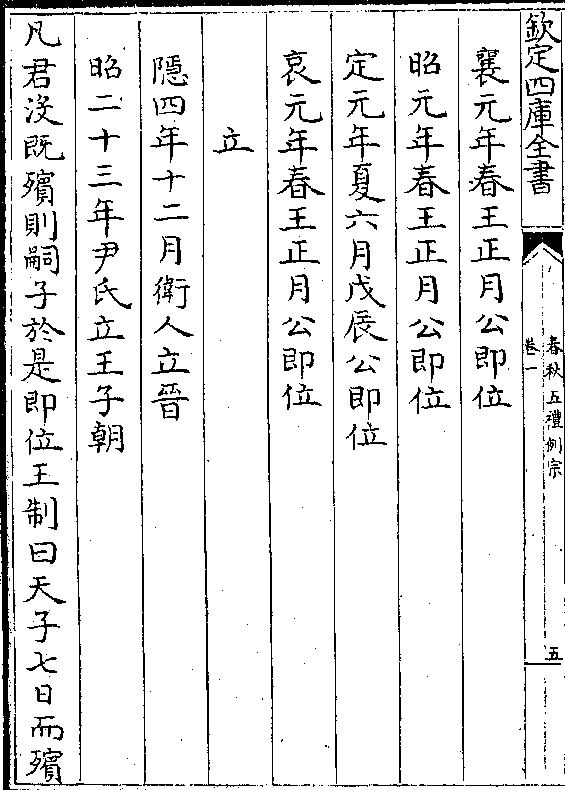 欽定四庫全書
春秋五禮例宗
卷一
五
襄元年春王正月公即位
昭元年春王正月公即位
定元年夏六月戊辰公即位
哀元年春王正月公即位
立
隱四年十二月衛人立晉
昭二十三年尹氏立王子朝
凡君沒既殯則嗣子於是即位王制曰天子七日而殯